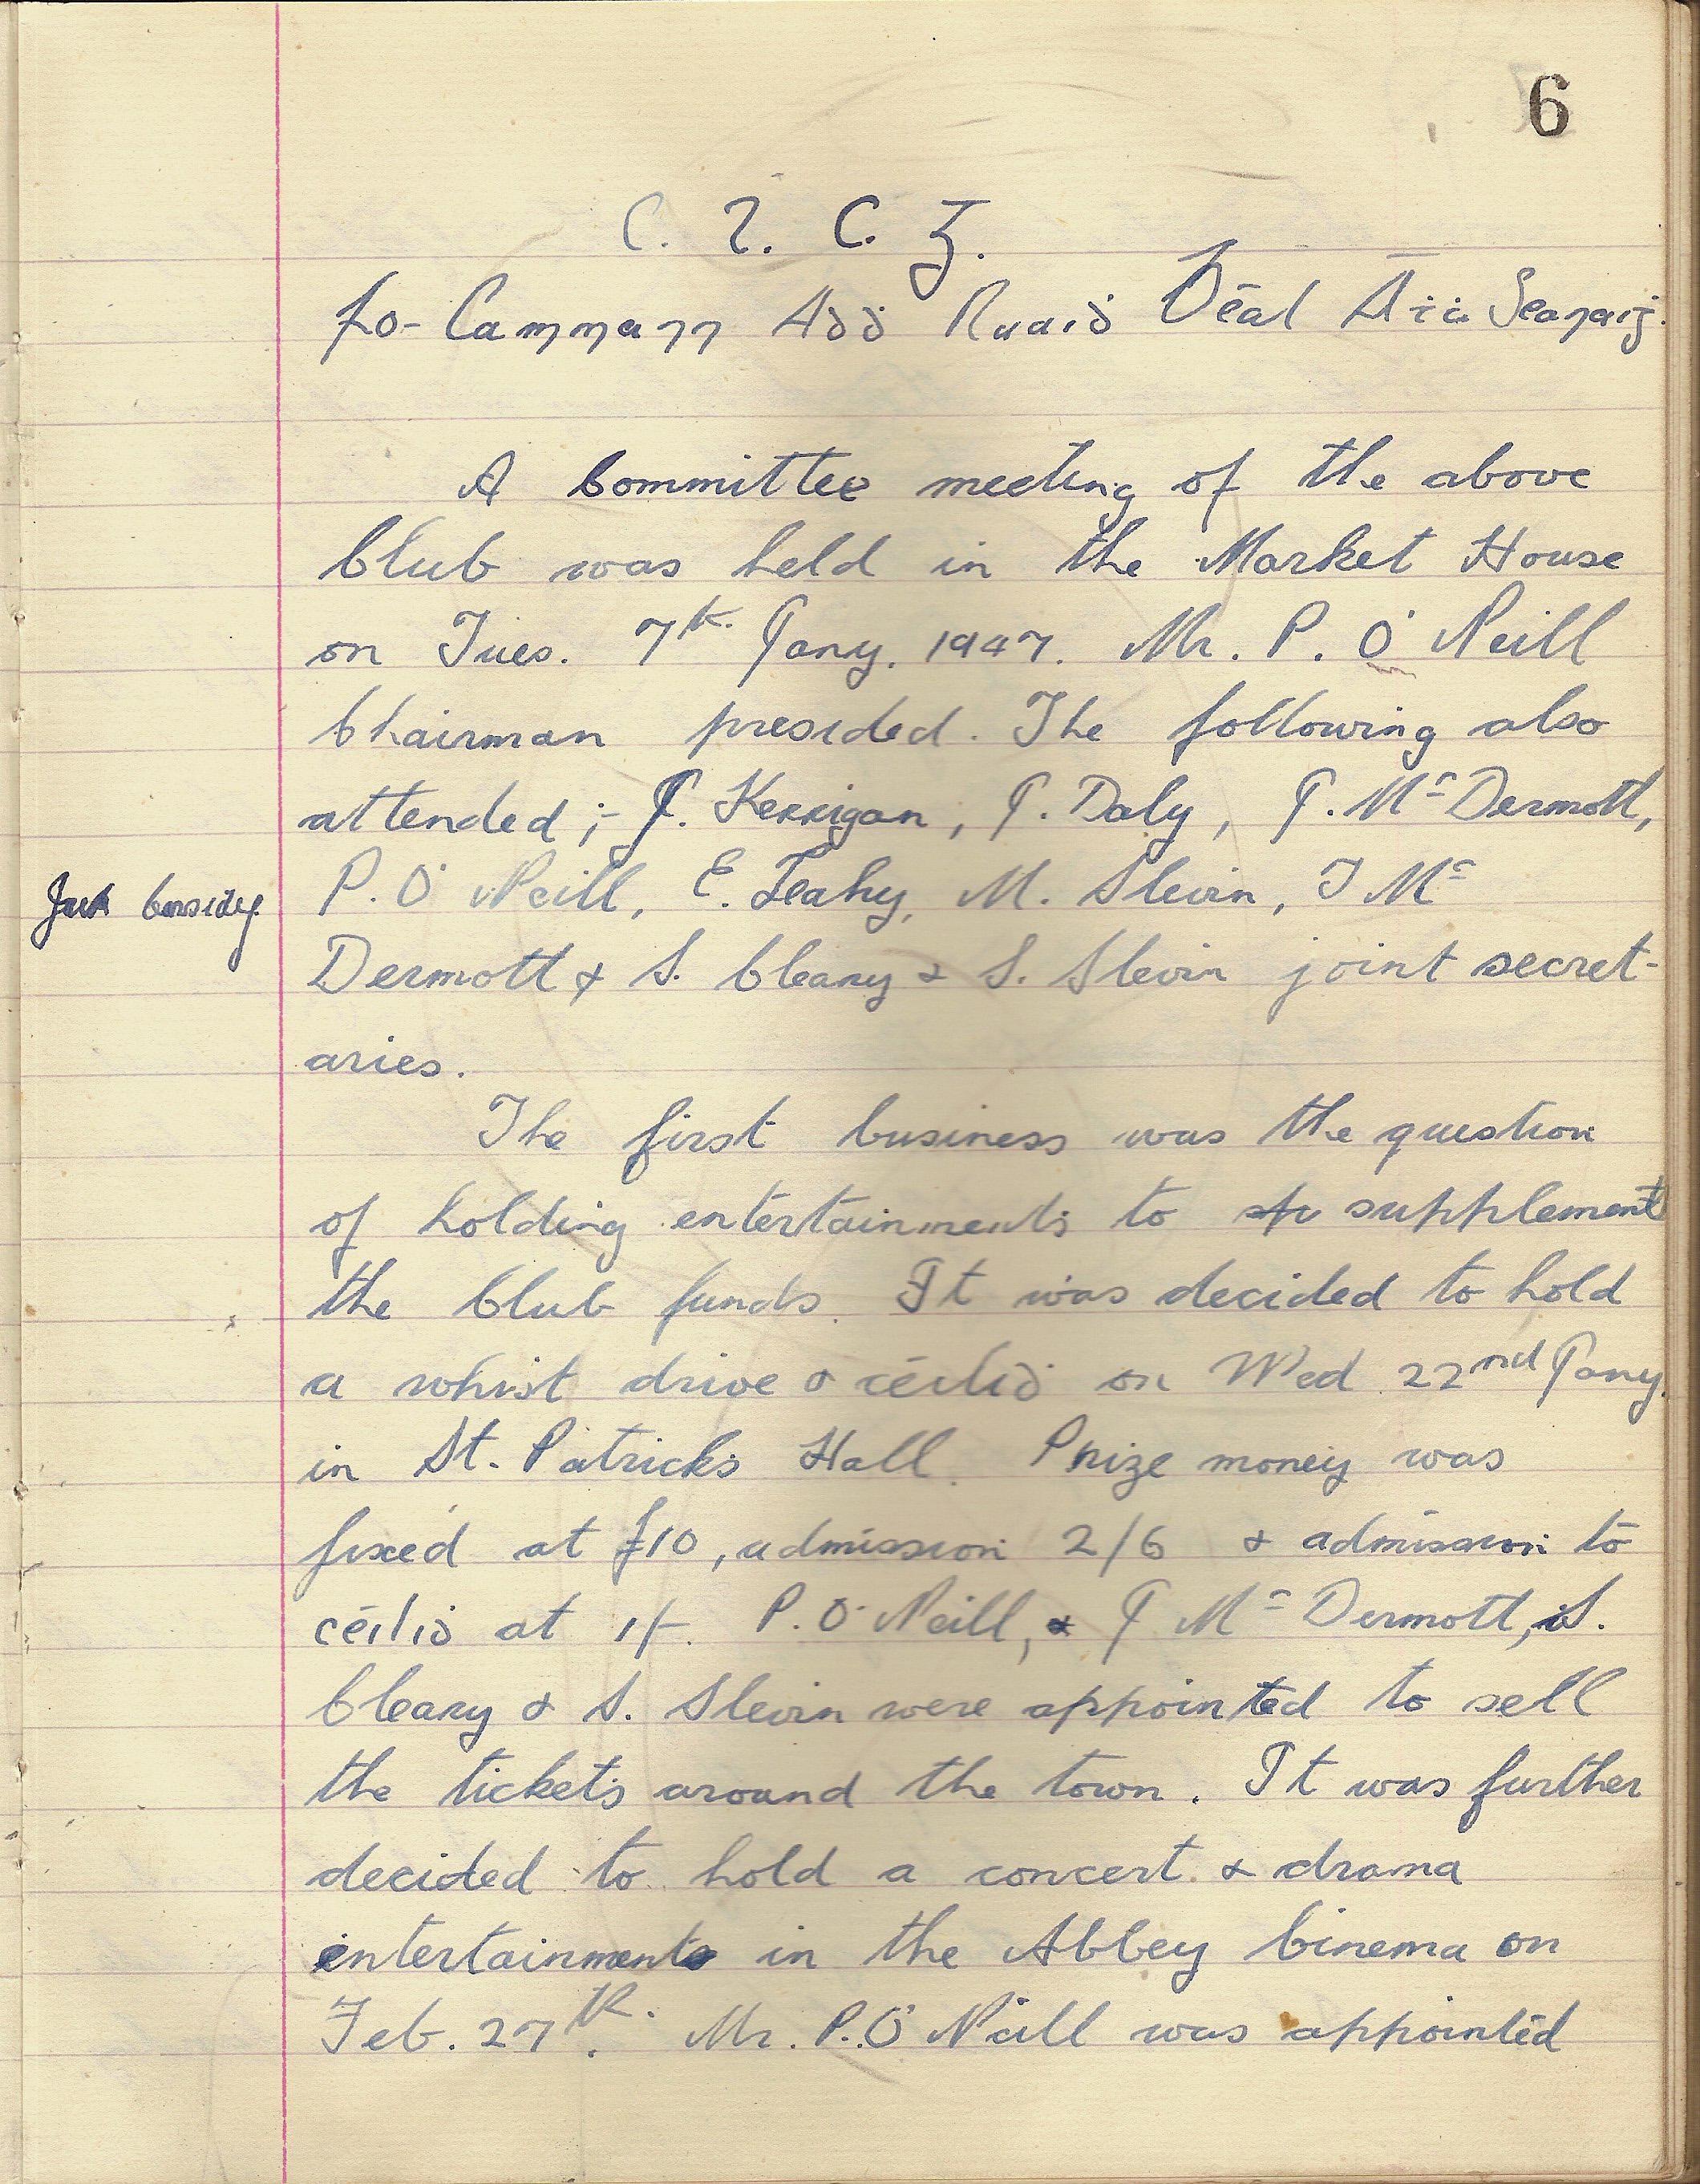 6
C. L. C. G.
Fo-Cummann Aoḋ Ruaiḋ Béal Áṫa Seanaiġ.
A Committee meeting of the above
Club was held in the Market House
on Tues. 7th. Jany. 1947. Mr. P. O'Neill
Chairman presided. The following also
attended;- J. Kerrigan, J. Daly, J. Mc Dermott,
Jack Cassidy.
P. O'Neill, E. Leahy, M. Slevin, T Mc
Dermott & S. Cleary & S. Slevin joint secret-
aries.
The first business was the question
of holding entertainments to su supplement
the Club funds. It was decided to hold
a whist drive & céiliḋ on Wed 22nd Jany.
in St. Patricks Hall. Prize money was
fixed at £10, admission 2/6 & admission to
céiliḋ at 1/-. P. O'Neill, & J Mc Dermott, S.
Cleary & S. Slevin were appointed to sell
the tickets around the town. It was further
decided to hold a concert & drama
entertainments in the Abbey Cinema on
Feb. 27th. Mr. P. O'Neill was appointed